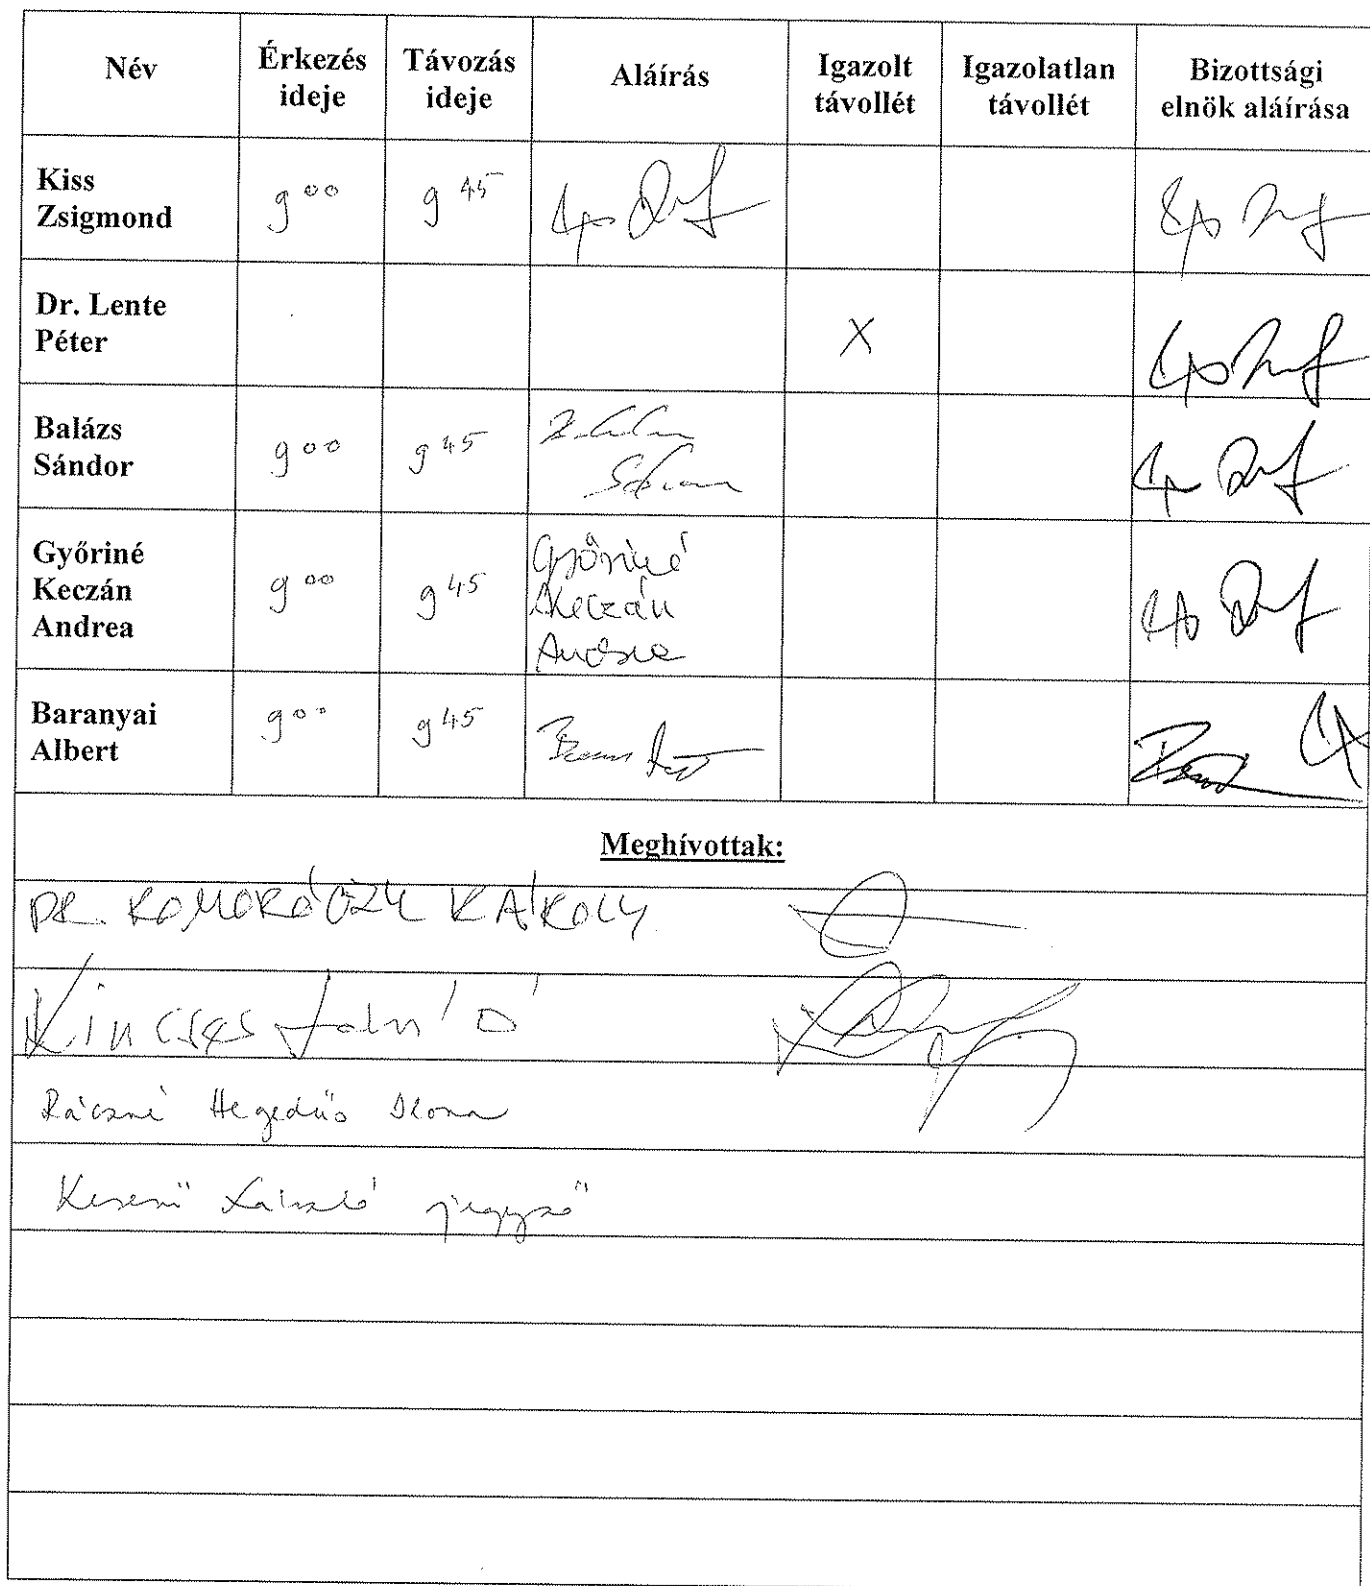 Név Érkezés ideje Távozás ideje Aláírás Igazolt távollét Igazolatlan távollét Bizottsági elnök aláírása
Kiss Zsigmond 9 00 9 45
Dr. Lente Péter X
Balázs Sándor 9 00 9 45
Győriné Keczán Andrea 9 00 9 45 Győriné Keczán Andrea
Baranyai Albert 9 00 9 45
Meghívottak:
DR. KOMORÓCZY KÁROLY
Kincses
Rácsné Hegedűs Ilona
László jegyző